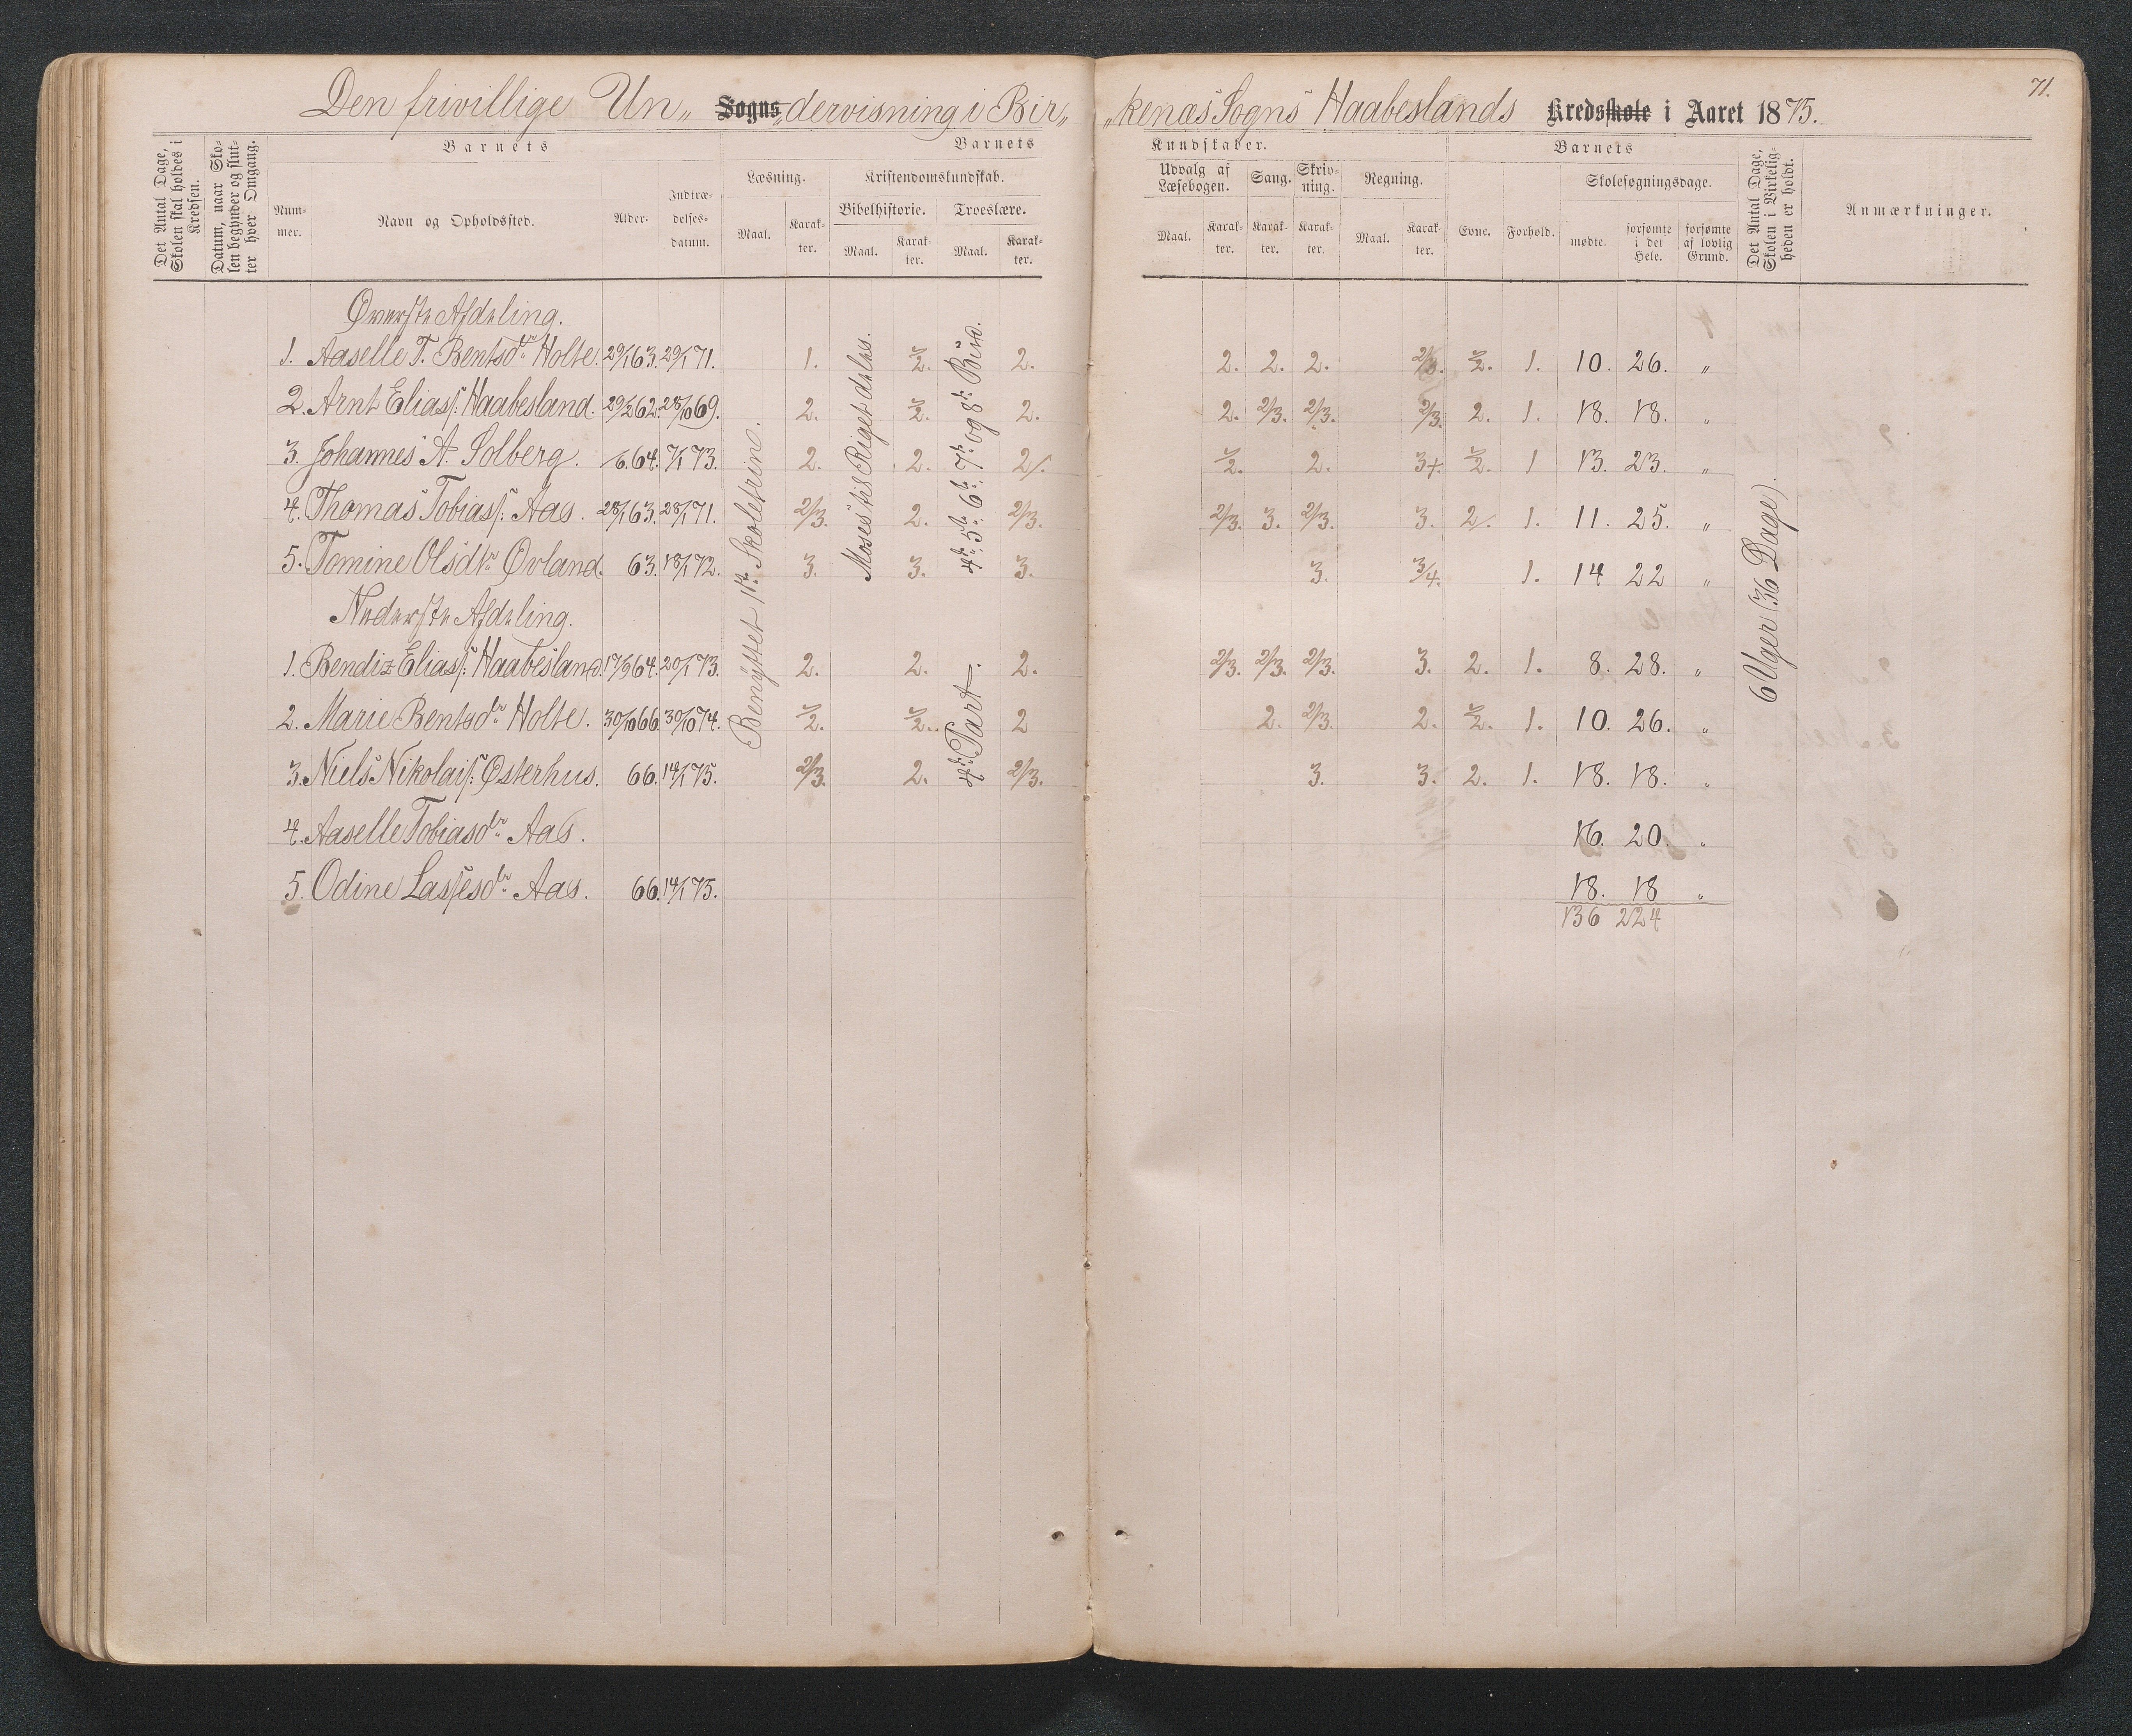 71.
Den frivillige Un„ Sogns „dervisning i Bir„ „kenæs Sogns Haabeslands Kredsskole i Aaret 1875.
Det Antal Dage, Skolen skal holdes i Kredsen.
Datum, naar Skolen begynder og slutter hver Omgang.
Barnets
Nummer.
Navn og Opholdssted.
Alder.
Indtrædelsesdatum.
Barnets Kundskaber.
Læsning.
Maal. Karakter.
Kristendomskundskab.
Bibelhistorie. Troeslære.
Maal. Karakter. Maal. Karakter.
Udvalg af Læsebogen. Sang. Skrivning. Regning.
Maal. Karakter. Karakter. Karakter. Maal. Karakter.
Barnets
Evne. Forhold.
Skolesøgningsdage.
mødte. forsømte i det Hele. forsømte af lovlig Grund.
Det Antal Dage, Skolen i Virkeligheden er holdt.
Anmærkninger.
Øverste Afdeling.
1. Aaselle T. Bentsdtr Holte. 29/1 63. 29/1 71. 1. ½. 2. 2. 2. 2. 2/3. ½. 1. 10. 26. „
2. Arnt Eliass: Haabesland. 29/2 62. 28/10 69. 2. ½. 2. 2. 2/3. 2/3. 2/3. 2. 1. 18. 18. „
3. Johannes A. Solberg. /6. 64. 7/1 73. 2. 2. 2/. ½. 2. 3+. ½. 1 13. 23. „
4. Thomas Tobiass: Aas. 28/1 63. 28/1 71. 2/3. 2. 2/3. 2/3. 3. 2/3. 3. 2/. 1. 11. 25. „
5. Tomine Olsdtr Øvland. 63. 18/1 72. 3. 3. 3. 3. 3/4. 1. 14 22 „
Nederste Afdeling.
1. Bendix Eliass: Haabesland. 17/9 64. 20/1 73. 2. 2. 2. 2/3. 2/3. 2/3. 3. 2. 1. 8. 28. „
2. Marie Bentsdtr Holte. 30/10 66. 30/10 74. ½. ½. 2 2. 2/3. 2. ½. 1. 10. 26. „
3. Niels Nikolais: Østerhus. 66. 14/1 75. 2/3. 2. 2/3. 3. 3. 2. 1. 18. 18. „
4. Aaselle Tobiasdtr Aas. 16. 20. „
5. Odine Lassesdtr Aas. 66. 14/1 75. 18. 18 „
136 224
Benyttet 1ste Skoletrin.
Moses til Riget deles.
4de 5te 6te 7de og 8de Bud.
4de Part.
6 Uger (36 Dage).